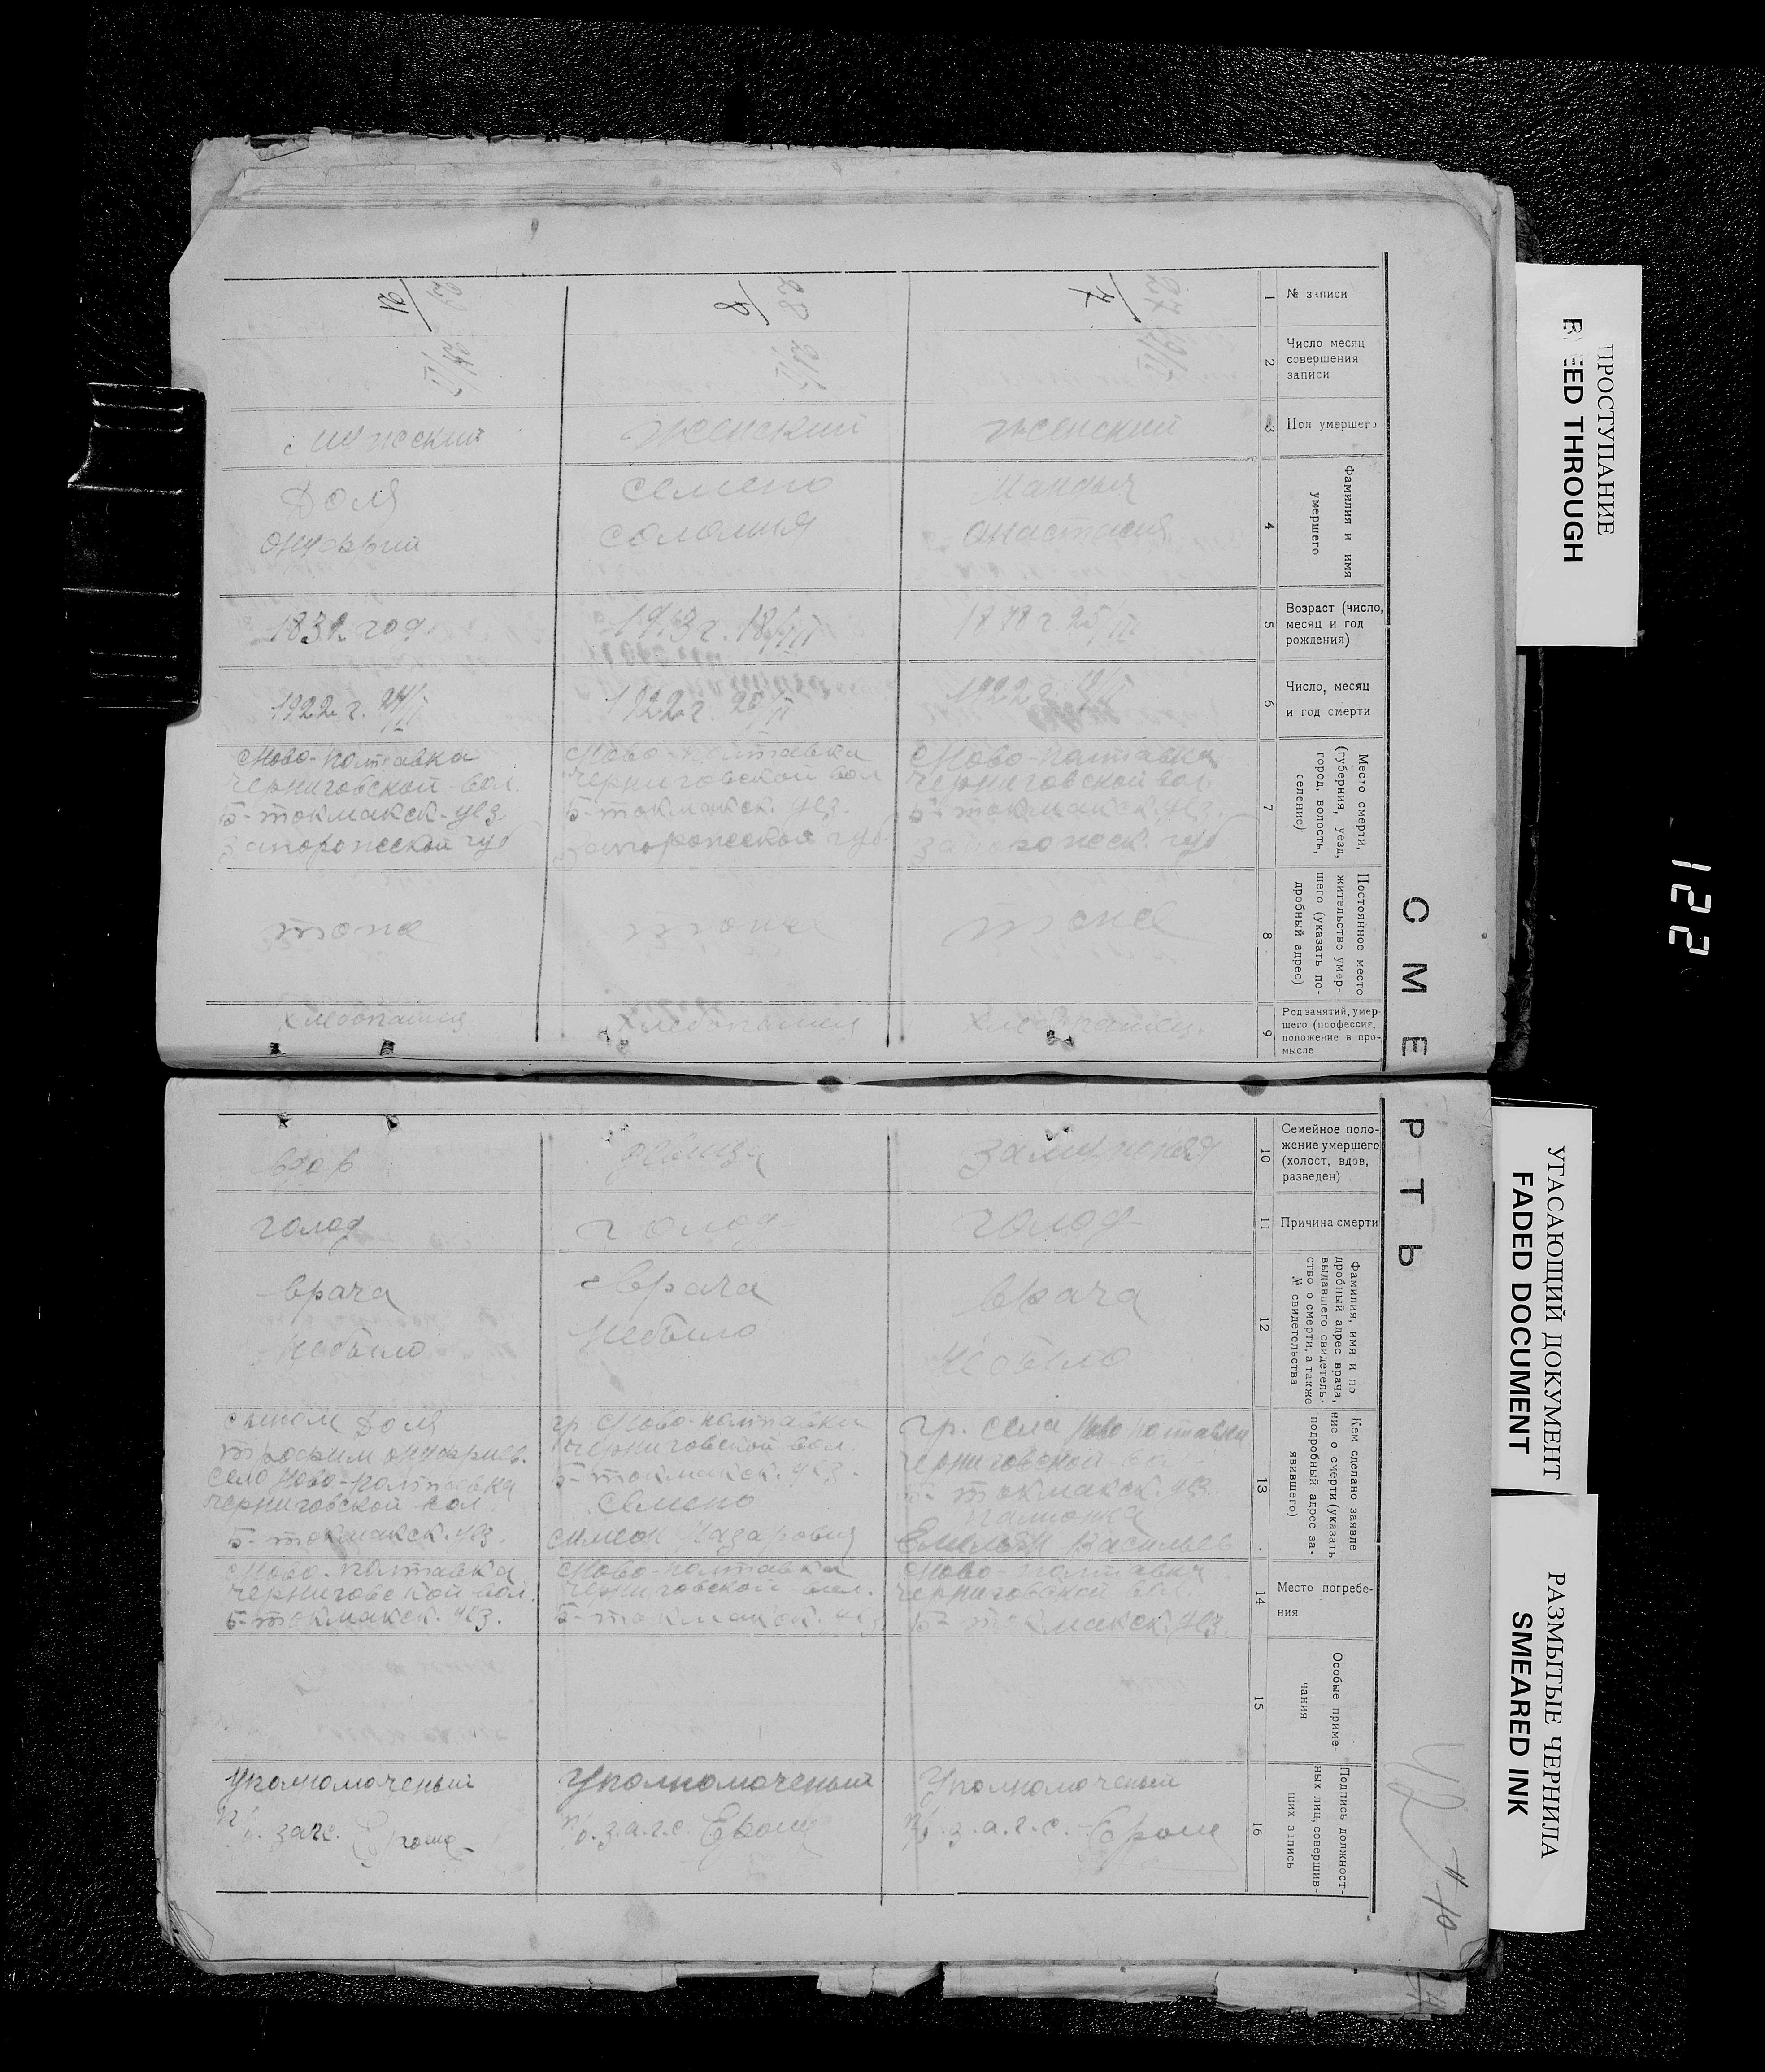 СМЕРТЬ
1
№ записи
2
Число месяц
совершения
записи
3
Пол умершего
4
Фамилия и имя
умершего
5
Возраст (число,
месяц и год
рождения)
6
Число, месяц
и год смерти
7
Место смерти,
(губерния, уезд,
город, волость,
селение)
8
Постоянное место
жительство умер-
шего (указать по-
дробный адрес)
9
Род занятий, умер-
шего (профессия,
положение в про-
мысле
10
Семейное поло-
жение умершего
(холост, вдов,
разведен)
11
Причина смерти
12
Фамилия, имя и по
дробный адрес врача,
выдавшего свидетель-
ство о смерти, а также
№ свидетельства
13
Кем сделано заявле
ние о смерти (указать
подробный адрес за-
явившего)
14
Место погребе-
ния
15
Особые приме-
чания
16
Подпись должност-
ных лиц, совершив-
ших запись
27/7
женский
Анастасия
1922 г.
Ново-Полтавка
Черниговской вол.
Б-Токмакск. уез.
Запорожск. губ
тоже
Хлебопашец
замужняя
голод
врача
небыло
гр. села Ново Полтавки
Черниговской вол
Б-Токмакск. уез.
Емельян Васильев
Ново-Полтавка
Черниговской вол.
Б-Токмакск. уез.
Уполномоченый
п/о. з.а.г.с.
28/8
женский
Семено
Соломия
1913 г. 18/III
1922 г.
Ново-Полтавка
Черниговской вол
Б-Токмакск. уез.
Запорожской губ
тоже
Хлебопашец
голод
врача
небыло
гр. Ново-Полтавки
Черниговской вол.
Б-Токмакск. уез.
Семено
Симеон Назарович
Ново-Полтавка
Черниговской вол.
Б-Токмакск. уез
Уполномоченый
п/о. з.а.г.с.
мужский
Доля
Онуфрий
1831 год
1922 г.
Ново-Полтавка
Черниговской вол.
Б-Токмакск. уез.
Запорожской губ
тоже
Хлебопашец
вдов
голод
врача
небыло
сыном Доля
Трофим Онуфриев.
село Ново-Полтавка
Черниговской вол
Б-Токмакск. уез.
Ново-Полтавка
Черниговской вол.
Б-Токмакск. уез.
Уполномоченый
п/о. загс.
ПРОСТУПАНИЕ
BLEED THROUGH
122
УГАСАЮЩИЙ ДОКУМЕНТ
FADED DOCUMENT
РАЗМЫТЫЕ ЧЕРНИЛА
SMEARED INK